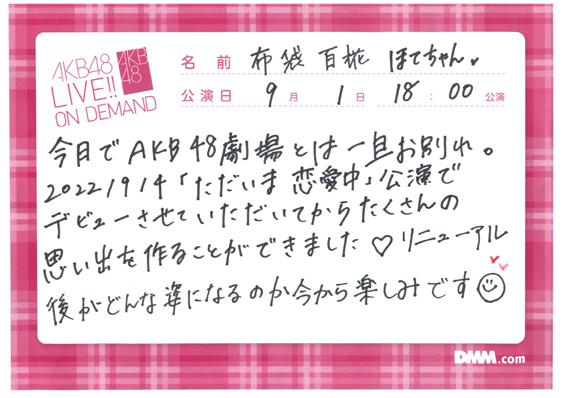 AKB48
LIVE!!
ON DEMAND
AKB
48
名前 布袋 百椛 ほてちゃん。
公演日 9月 1日 18:00 公演
今日でAKB48劇場とは一旦お別れ。
2022/9/4「ただいま 恋愛中」公演で
デビューさせていただいてからたくさんの
思い出を作ることができました♡リニューアル
後がどんな姿になるのか今から楽しみです☺
DMM.com